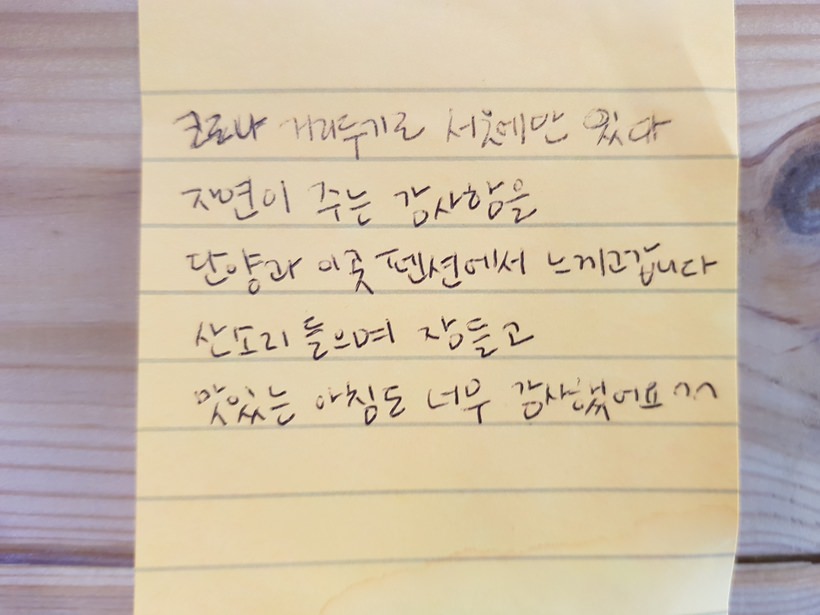 코로나 거리두기로 서울에만 있다
자연이 주는 감사함을
단양과 이곳 펜션에서 느끼고갑니다
산소리 들으며 잠들고
맛있는 아침도 너무 감사했어요^^